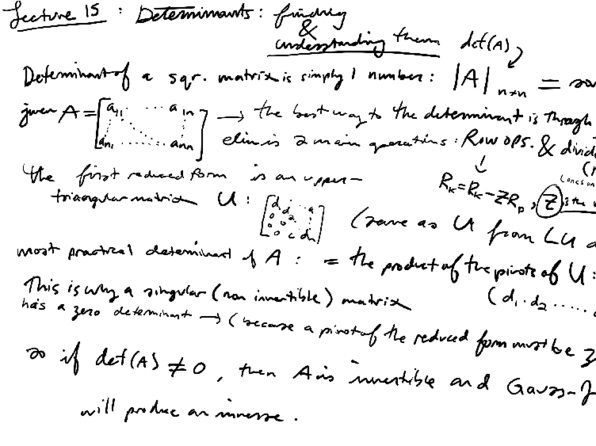 Lecture 15 : Determinants : finding
&
understanding them det(A)
Determinant of a sqr. matrix is simply 1 number : |A| n×n =
given A = [a11 ... a1n ... an1 ... ann] → the best way to the determinant is through
elim is 2 main operations : Row OPS. & divid
Rk = Rk - ZRp, Z is the
the first reduced form is an upper-
triangular matrix U : (same as U from LU
most practical determinant of A : = the product of the pivots of U :
This is why a singular (non invertible) matrix (d1 · d2 .....
has a zero determinant → (because a pivot of the reduced form must be
so if det(A) ≠ 0, then A is invertible and Gauss-J
will produce an inverse.